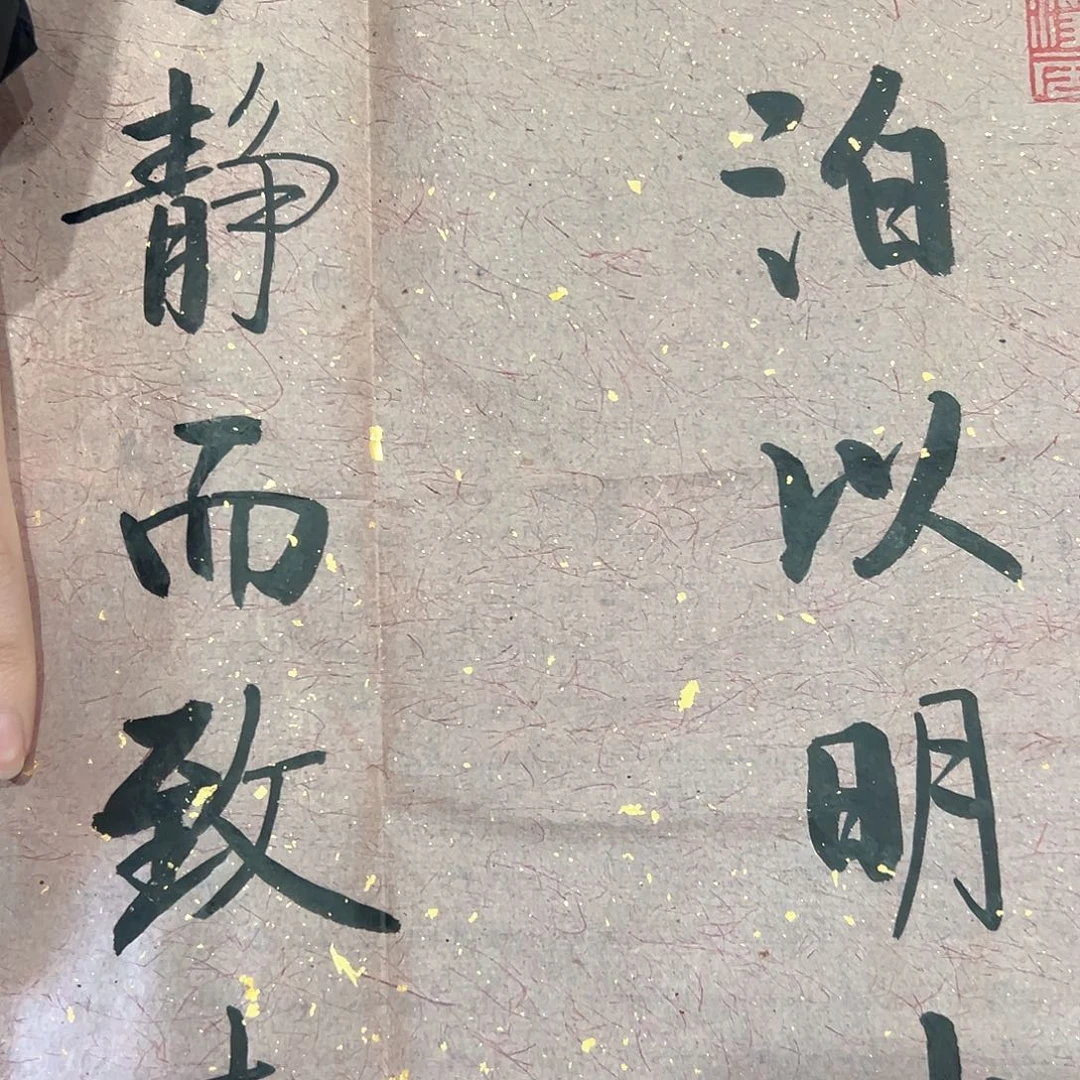 泊以明
静而致